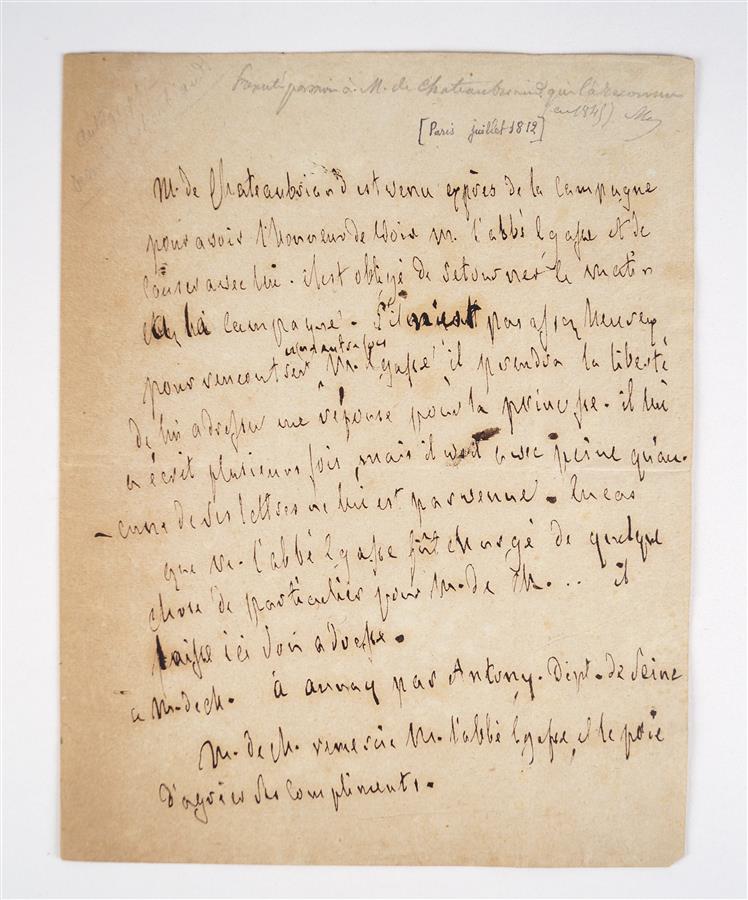 à M. de Chateaubriand qui l'a reconnu
(en 1845)
[Paris juillet 1812]
M. de Chateaubriand est venu exprès de la campagne
pour avoir l'honneur de voir M. l'abbé Lgasse et de
causer avec lui. il est obligé de retourner le matin
à la campagne. S'il n'est pas assez heureux
pour rencontrer M. Lgasse il prendra la liberté
de lui adresser une réponse pour la princesse. il lui
a écrit plusieurs fois, mais il voit avec peine qu'au-
cune de ses lettres ne lui est parvenue. En cas
que M. l'abbé Lgasse fût chargé de quelque
chose de particulier pour M. de Ch... il
laisse ici son adresse.
à M. de Ch. à aunay par Antony. Dépt. de Seine
M. de Ch. remercie M. l'abbé Lgasse, et le prie
d'agréer ses compliments.